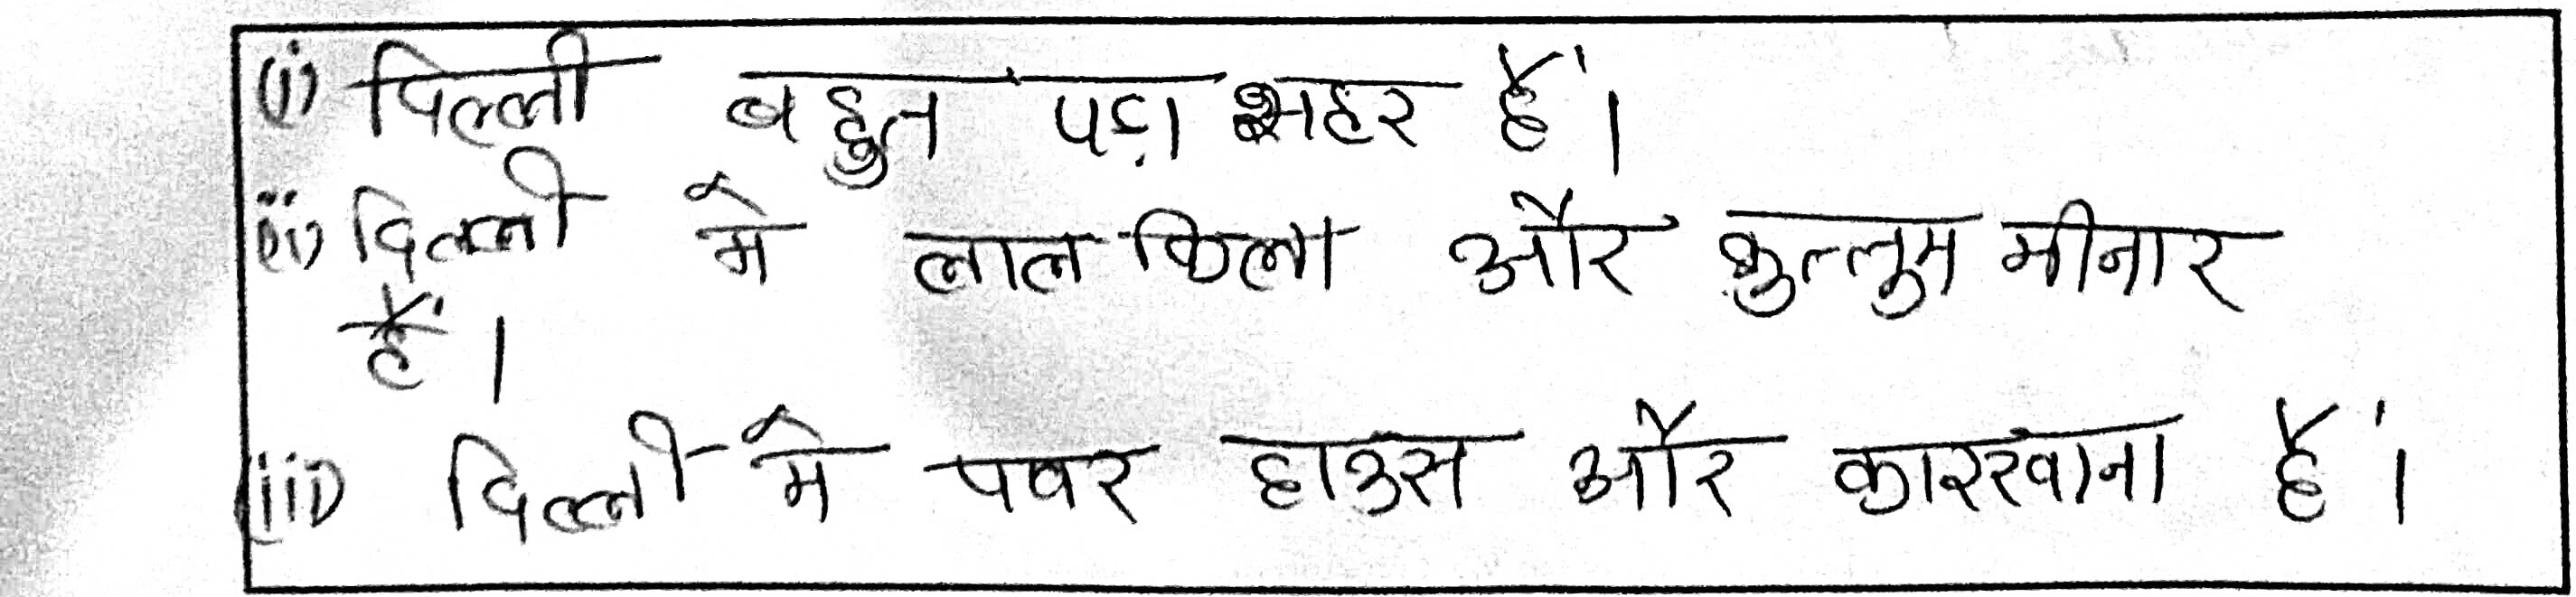 (i) दिल्ली बहुत पड़ा शहर हैं।
(ii) दिल्ली में लाल किला और कुत्तुम मीनार
हैं।
(iii) दिल्ली में पवर हाउस और कारखाना हैं।